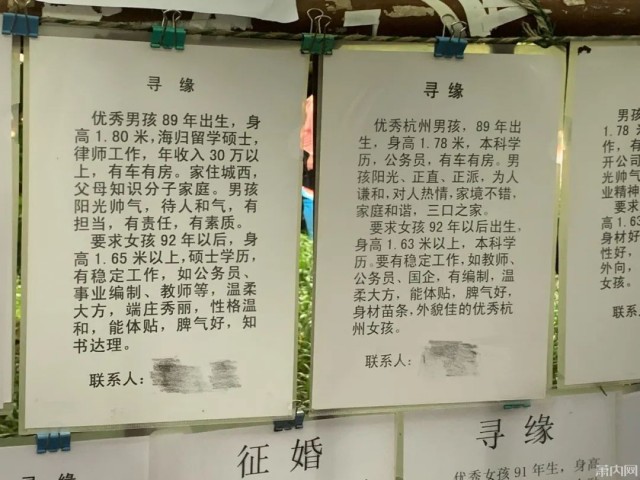 寻 缘
优秀男孩89年出生，身
高1.80米，海归留学硕士，
律师工作，年收入30万以
上，有车有房。家住城西，
父母知识分子家庭。男孩
阳光帅气，待人和气，有
担当，有责任，有素质。
要求女孩92年以后，身
高1.65米以上，硕士学历，
有稳定工作，如公务员、
事业编制、教师等，温柔
大方，端庄秀丽，性格温
和，能体贴，脾气好，知
书达理。
联系人：
寻 缘
优秀杭州男孩，89年出
生，身高1.78米，本科学
历，公务员，有车有房。男
孩阳光、正直、正派，为人
谦和，对人热情，家境不错，
家庭和谐，三口之家。
要求女孩92年以后出生，
身高1.63米以上，本科学
历。要有稳定工作，如教师、
公务员、国企，有编制，温
柔大方，能体贴，脾气好，
身材苗条，外貌佳的优秀杭
州女孩。
联系人：
男孩
1.78
作，有
开公司
光帅气
业精神
要求
1.63
身材好
性好，
外向，
女孩。
联
寻 缘
征 婚
寻 缘
优秀女孩91年生，身高
萧内网